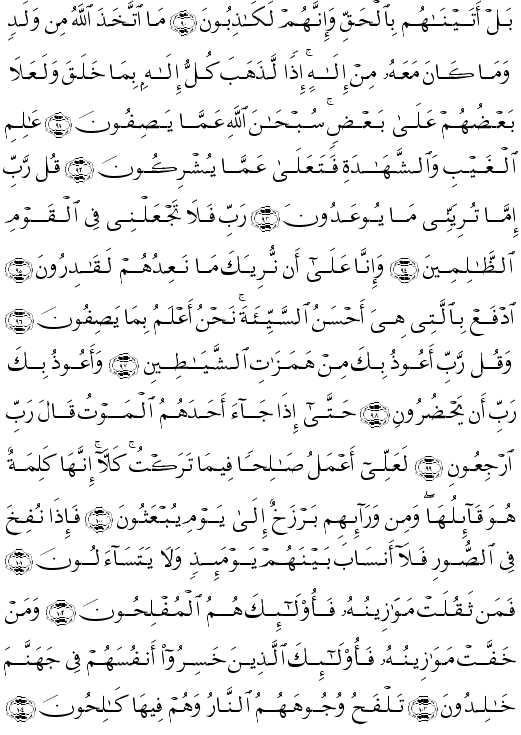 بَلْ أَتَيْنَٰهُم بِٱلْحَقِّ وَإِنَّهُمْ لَكَٰذِبُونَ ۝٩٠ مَا ٱتَّخَذَ ٱللَّهُ مِن وَلَدٍ
وَمَا كَانَ مَعَهُۥ مِنْ إِلَٰهٍ ۚ إِذًا لَّذَهَبَ كُلُّ إِلَٰهٍۭ بِمَا خَلَقَ وَلَعَلَا
بَعْضُهُمْ عَلَىٰ بَعْضٍ ۚ سُبْحَٰنَ ٱللَّهِ عَمَّا يَصِفُونَ ۝٩١ عَٰلِمِ
ٱلْغَيْبِ وَٱلشَّهَٰدَةِ فَتَعَٰلَىٰ عَمَّا يُشْرِكُونَ ۝٩٢ قُل رَّبِّ
إِمَّا تُرِيَنِّى مَا يُوعَدُونَ ۝٩٣ رَبِّ فَلَا تَجْعَلْنِى فِى ٱلْقَوْمِ
ٱلظَّٰلِمِينَ ۝٩٤ وَإِنَّا عَلَىٰٓ أَن نُّرِيَكَ مَا نَعِدُهُمْ لَقَٰدِرُونَ ۝٩٥
ٱدْفَعْ بِٱلَّتِى هِىَ أَحْسَنُ ٱلسَّيِّئَةَ ۚ نَحْنُ أَعْلَمُ بِمَا يَصِفُونَ ۝٩٦
وَقُل رَّبِّ أَعُوذُ بِكَ مِنْ هَمَزَٰتِ ٱلشَّيَٰطِينِ ۝٩٧ وَأَعُوذُ بِكَ
رَبِّ أَن يَحْضُرُونِ ۝٩٨ حَتَّىٰٓ إِذَا جَآءَ أَحَدَهُمُ ٱلْمَوْتُ قَالَ رَبِّ
ٱرْجِعُونِ ۝٩٩ لَعَلِّىٓ أَعْمَلُ صَٰلِحًا فِيمَا تَرَكْتُ ۚ كَلَّآ ۚ إِنَّهَا كَلِمَةٌ
هُوَ قَآئِلُهَا ۖ وَمِن وَرَآئِهِم بَرْزَخٌ إِلَىٰ يَوْمِ يُبْعَثُونَ ۝١٠٠ فَإِذَا نُفِخَ
فِى ٱلصُّورِ فَلَآ أَنسَابَ بَيْنَهُمْ يَوْمَئِذٍ وَلَا يَتَسَآءَلُونَ ۝١٠١
فَمَن ثَقُلَتْ مَوَٰزِينُهُۥ فَأُو۟لَٰٓئِكَ هُمُ ٱلْمُفْلِحُونَ ۝١٠٢ وَمَنْ
خَفَّتْ مَوَٰزِينُهُۥ فَأُو۟لَٰٓئِكَ ٱلَّذِينَ خَسِرُوٓا۟ أَنفُسَهُمْ فِى جَهَنَّمَ
خَٰلِدُونَ ۝١٠٣ تَلْفَحُ وُجُوهَهُمُ ٱلنَّارُ وَهُمْ فِيهَا كَٰلِحُونَ ۝١٠٤